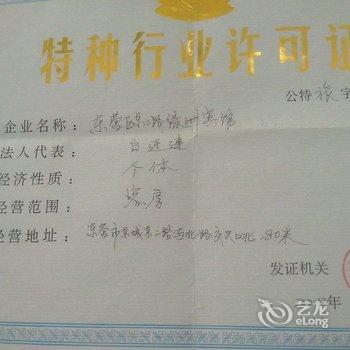 特种行业许可证
公特旅字
企业名称：东营区东二路绿州宾馆
法人代表：白进连
经济性质：个体
经营范围：客房
经营地址：东营市东城东二路与北一路交叉口北80米
发证机关
年
艺龙
eLong.com